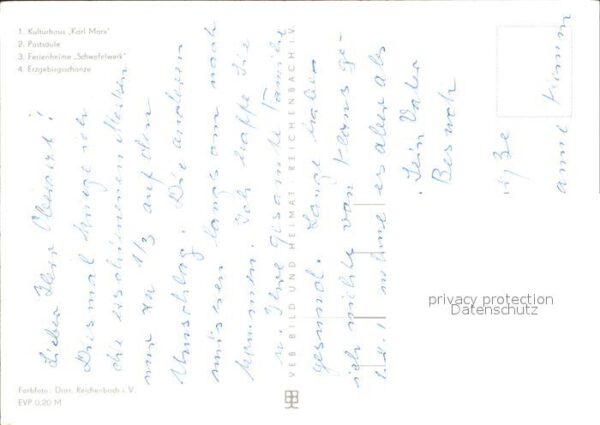 1. Kulturhaus „Karl Marx"
2. Postsäule
3. Ferienheime „Schwefelwerk"
4. Erzgebirgsschanze
Lieber Herr Oberarzt!
Diesmal kriege ich
die erschienenen Marken
nur zu 1/3 auf den
Umschlag. Die anderen
müssen langsam nach
kommen. Ich hoffe Sie
u. Ihre gesamte Familie
gesund. Lange habe
ich nichts von Klaus ge-
nehme es aber als
Sein Vater
Besuch
VEB BILD UND HEIMAT REICHENBACH i.V.
Farbfoto: Darr, Reichenbach i. V.
EVP 0,20 M
privacy protection
Datenschutz